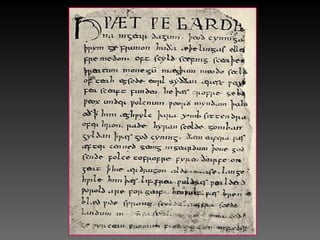 HǷÆT ǷE GARDE
na ingear dagum. þeod cyninga
þrym ge frunon huða æþelingas elle
fre medon. oft scyld scefing sceaþe
þreatum monegū mægþum meodo setla
of teah egsode eorl syððan ærest ƿear
fea sceaft funden he þæs frofre geba
ƿeox under ƿolcnum ƿeorð myndum þah
oð ꝥ him æghƿylc þara ymb sittendra
ofer hron rade hyran scolde gomban
gyldan ꝥ ƿæs god cyning. ðæm eafera ƿæs
æfter cenned geong in geardum þone god
sende folce tofrofre fyren ðearfe on
geat ꝥ hie ær drugon aldor ase. lange
hƿile him þæs lif frea ƿuldres ƿealdend
ƿorold are for geaf. beoƿulf ƿæs breme
blæd ƿide sprang scyldes eafera scede
landum in. gode
ge ƿyrcean fromum feoh giftum